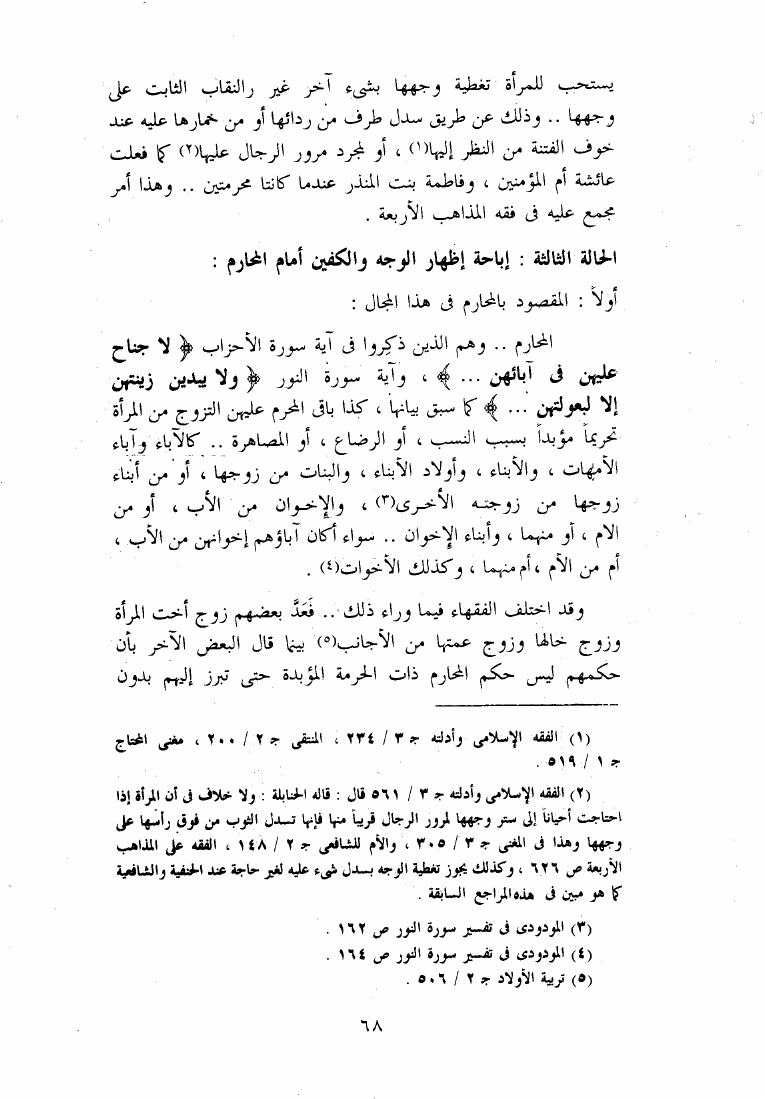 يستحب للمرأة تغطية وجهها بشىء آخر غير رالنقاب الثابت على
وجهها .. وذلك عن طريق سدل طرف من ردائها أو من خمارها عليه عند
خوف الفتنة من النظر إليها(١) ، أو لمجرد مرور الرجال عليها(٢) كما فعلت
عائشة أم المؤمنين ، وفاطمة بنت المنذر عندما كانتا محرمتين .. وهذا أمر
مجمع عليه فى فقه المذاهب الأربعة .
الحالة الثالثة : إباحة إظهار الوجه والكفين أمام المحارم :
أولاً : المقصود بالمحارم فى هذا المجال :
المحارم .. وهم الذين ذكروا فى آية سورة الأحزاب ﴿ لا جناح
عليهن فى آبائهن ... ﴾ ، وآية سورة النور ﴿ ولا يبدين زينتهن
إلا لبعولتهن ... ﴾ كما سبق بيانها ، كذا باقى المحرم عليهن التزوج من المرأة
تحريماً مؤبداً بسبب النسب ، أو الرضاع ، أو المصاهرة .. كالآباء وآباء
الأمهات ، والأبناء ، وأولاد الأبناء ، والبنات من زوجها ، أو من أبناء
زوجها من زوجته الأخرى(٣) ، والإخوان من الأب ، أو من
الام ، أو منهما ، وأبناء الإخوان .. سواء أكان آباؤهم إخوانهن من الأب ،
أم من الأم ، أم منهما ، وكذلك الأخوات(٤) .
وقد اختلف الفقهاء فيما وراء ذلك .. فَعَدَّ بعضهم زوج أخت المرأة
وزوج خالها وزوج عمتها من الأجانب(٥) بينما قال البعض الآخر بأن
حكمهم ليس حكم المحارم ذات الحرمة المؤبدة حتى تبرز إليهم بدون
(١) الفقه الإسلامى وأدلته جـ ٣ / ٢٣٤ ، المنتقى جـ ٢ / ٢٠٠ ، مغنى المحتاج
جـ ١ / ٥١٩ .
(٢) الفقه الإسلامى وأدلته جـ ٣ / ٥٦١ قال : قاله الحنابلة : ولا خلاف فى أن المرأة إذا
احتاجت أحياناً إلى ستر وجهها لمرور الرجال قريباً منها فإنها تسدل الثوب من فوق رأسها على
وجهها وهذا فى المغنى جـ ٣ / ٣٠٥ ، والأم للشافعى جـ ٢ / ١٤٨ ، الفقه على المذاهب
الأربعة ص ٦٢٦ ، وكذلك يجوز تغطية الوجه بسدل شىء عليه لغير حاجة عند الحنفية والشافعية
كما هو مبين فى هذه المراجع السابقة .
(٣) المودودى فى تفسير سورة النور ص ١٦٢ .
(٤) المودودى فى تفسير سورة النور ص ١٦٤ .
(٥) تربية الأولاد جـ ٢ / ٥٠٦ .
٦٨